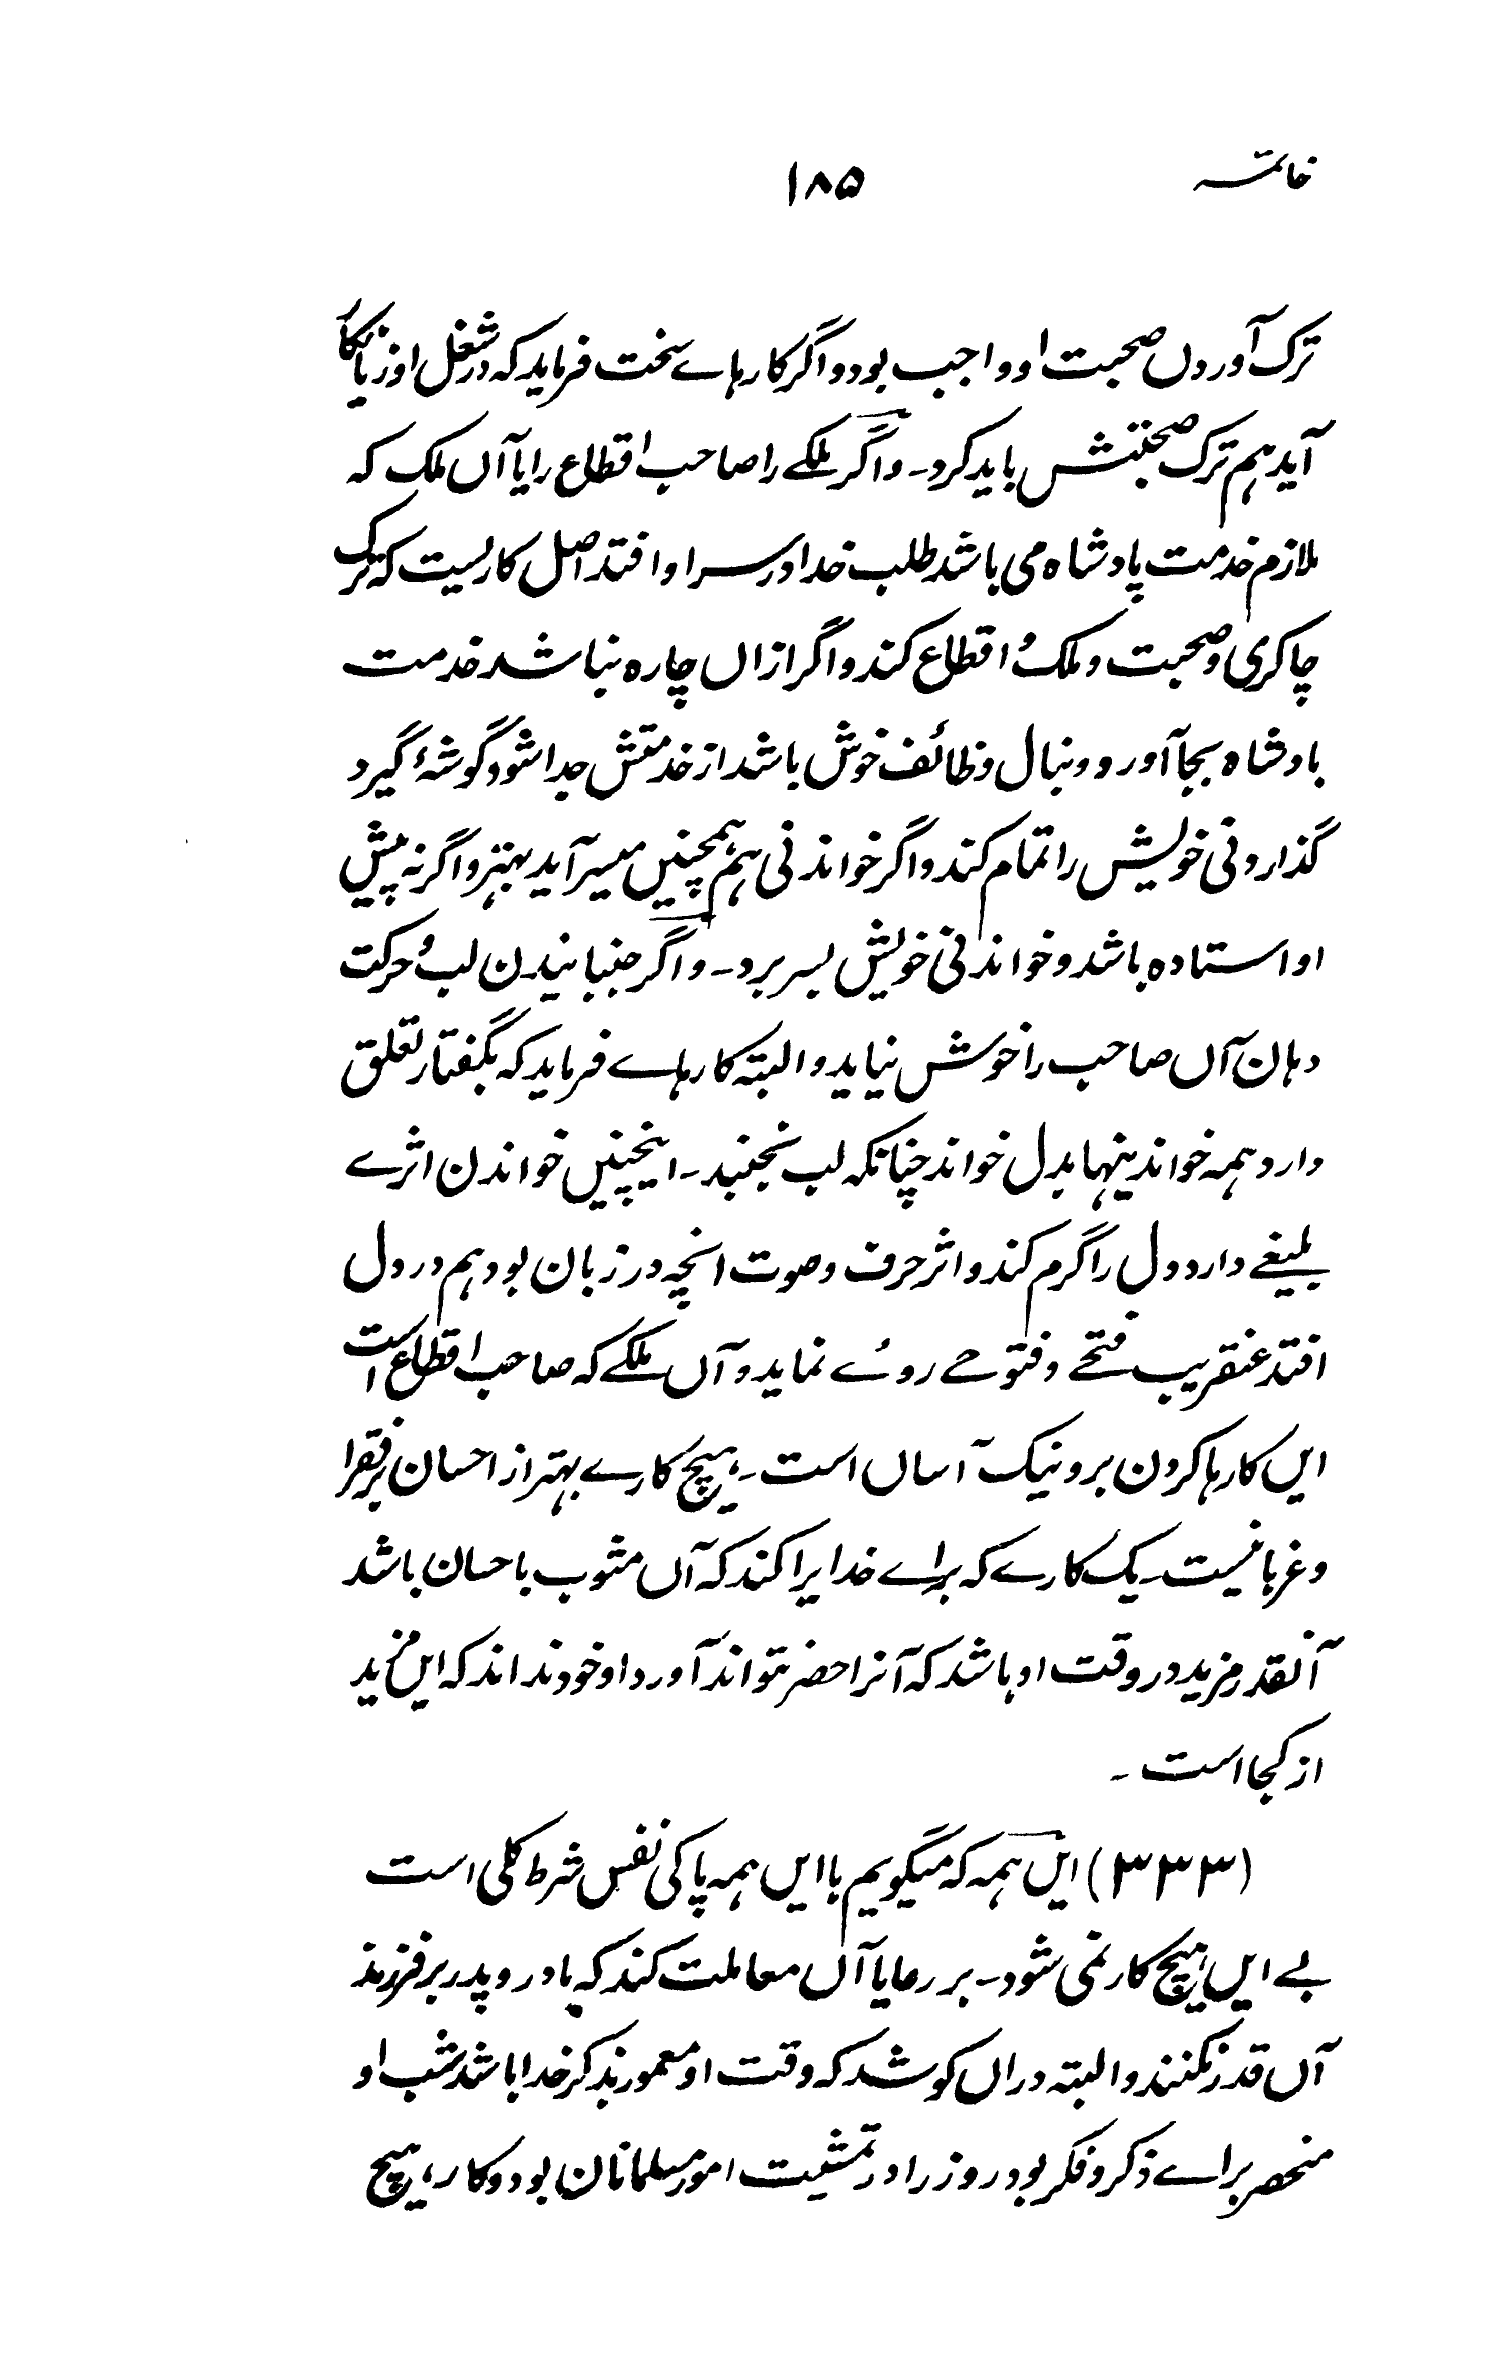 خاتمہ
۱۸۵
ترک آوردن صحبت او واجب بود و اگر کارہاے سخت فرماید کہ در شغل او زیانکار
آید ہم ترک صحبتش باید کرد۔ و اگر ملکے را صاحب اقطاع را یا آں ملک کہ
ملازم خدمت پادشاہ می باشد طلب خدا در سر او افتد اصل کاریست کہ ترک
چاکری و صحبت و ملک و اقطاع کند و اگر ازاں چارہ نباشد خدمت
بادشاہ بجا آورد و دنبال وظائف خوش باشد از خدمتش جدا شود گوشۂ گیرد
گذاردنی خویش را تمام کند و اگر خواندنی ہم ہمچنیں میسر آید بہتر و اگر نہ پیش
او استادہ باشد و خواندنی خویش بسر برد۔ و اگر جنبانیدن لب و حرکت
دہان آں صاحب را خوش نیاید و البتہ کارہاے فرماید کہ بگفتار تعلق
دارد ہمہ خواندینہا بدل خواند چنانکہ لب نجنبد۔ اینچنیں خواندن اثرے
بلیغے دارد دل را گرم کند و اثر حرف و صوت انچہ در زبان بود ہم در دل
افتد عنقریب فتحے و فتوحے روے نماید و آں ملکے کہ صاحب اقطاع است
ایں کارہا کردن برو نیک آساں است۔ ہیچ کارے بہتر از احسان بر فقرا
و غربا نیست۔ یک کارے کہ براے خدایرا کند کہ آں مثوب باحسان باشد
آنقدر مزید در وقت او باشد کہ آنرا حضر نتواند آورد او خود نداند کہ ایں مزید
از کجا است ۔
(۳۳۳) ایں ہمہ کہ میگویم با ایں ہمہ پاکی نفس شرط کلی است
بے ایں ہیچ کار نمی شود۔ بر رعایا آں معاملت کند کہ مادر و پدر بر فرزند
آں قدر نکنند و البتہ دراں کوشد کہ وقت او معمور بذکر خدا باشد شب او
منحصر براے ذکر و فکر بود روز را در تمشیت امور مسلمانان بود و کار ہیچ